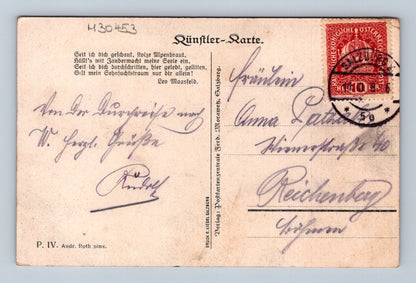 H30453
Künstler-Karte.
Seit ich dich geschaut, stolze Alpenbraut,
Hüllt's mit Zaubermacht meine Seele ein,
Seit ich dich durchschritten, hier gelebt, gelitten,
Gilt mein Sehnsuchtstraum nur dir allein!
Leo Maasfeld.
Von der Durchreise nach
W. herzl. Grüße
Rudolf
P. IV. Andr. Roth pinx.
Verlag: Postkartenzentrale Ferd. Morawetz, Salzburg.
KAISERLICHE KÖNIGLICHE ÖSTERREICHISCHE
10
SALZBURG
* 5g *
Fräulein
Anna
Wienerstraße 40
Reichenberg
Böhmen